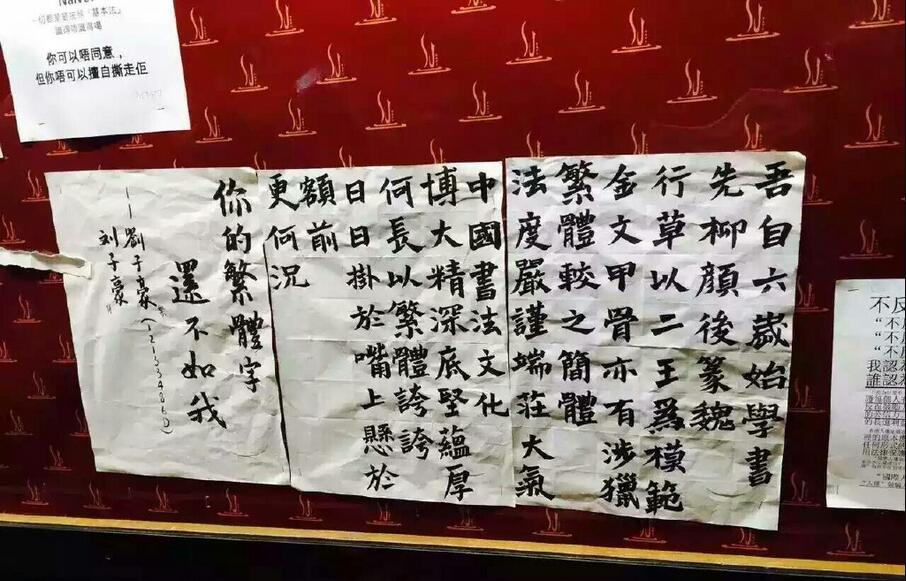 一切都是要按照「基本法」
你可以唔同意，
但你唔可以擅自撕走佢
吾自六歲始學書
先柳顏後篆魏
行草以二王爲模範
金文甲骨亦有涉獵
繁體較之簡體
法度嚴謹端莊大氣
中國書法文化
博大精深底堅蘊厚
何長以繁體誇誇
日日掛於嘴上懸於
額前
更何況
你的繁體字
還不如我
——劉子豪
刘子豪
不反
“不反
“不反
“不反
我認為
誰認為